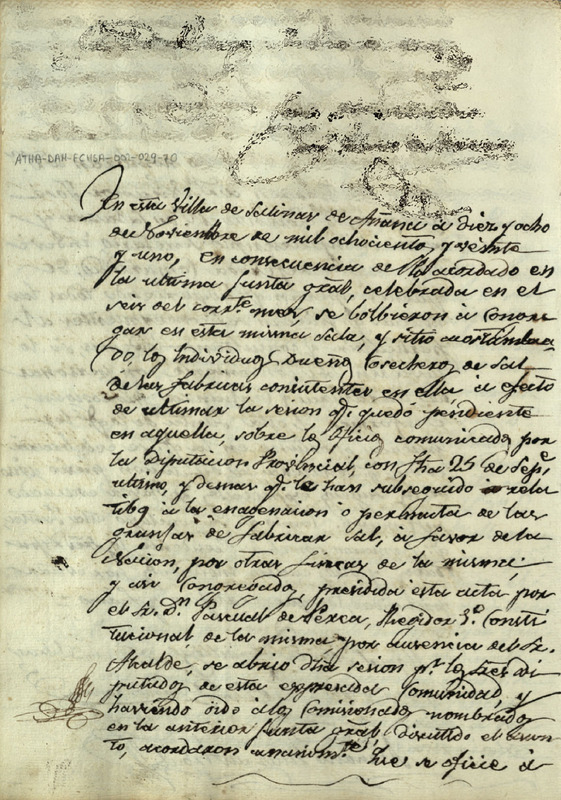 ATHA-DAH-FCHSA-002-029-70
En esta Villa de Salinas de Añana à diez y ocho
de Noviembre de mil ochocientos y veinte
y uno, en consecuencia de lo acordado en
la ultima Junta gral, celebrada en el
seis del corrte mes, se bolbieron à congre
gar en esta misma Sala, y sitio acostumbra
do, los Individuos Dueños Cosecheros de Sal
de las fabricas consistentes en ella à efecto
de ultimar la sesion qe. quedó pendiente
en aquella, sobre los Oficios comunicados por
la Diputacion Provincial, con fha 25 de Sepe
ultimo, y demas qe. le han subseguido rela
tibos à la enagenacion o permuta de las
granjas de fabricar Sal, à favor de la
Nacion, por otras fincas de la misma;
y asi Congregados, presidida esta acta por
el Sr. Dn. Pascual de Perea, Regidor 3º. Consti
tucional de la misma por ausencia del Sr.
Alcalde, se abrio dha sesion pr. los tres di
putados de esta expresada Comunidad, y
haviendo oido à los Comisionados nombrados
en la anterior Junta gral, discutido el asun
to, acordaron unanimte. Que se oficie à